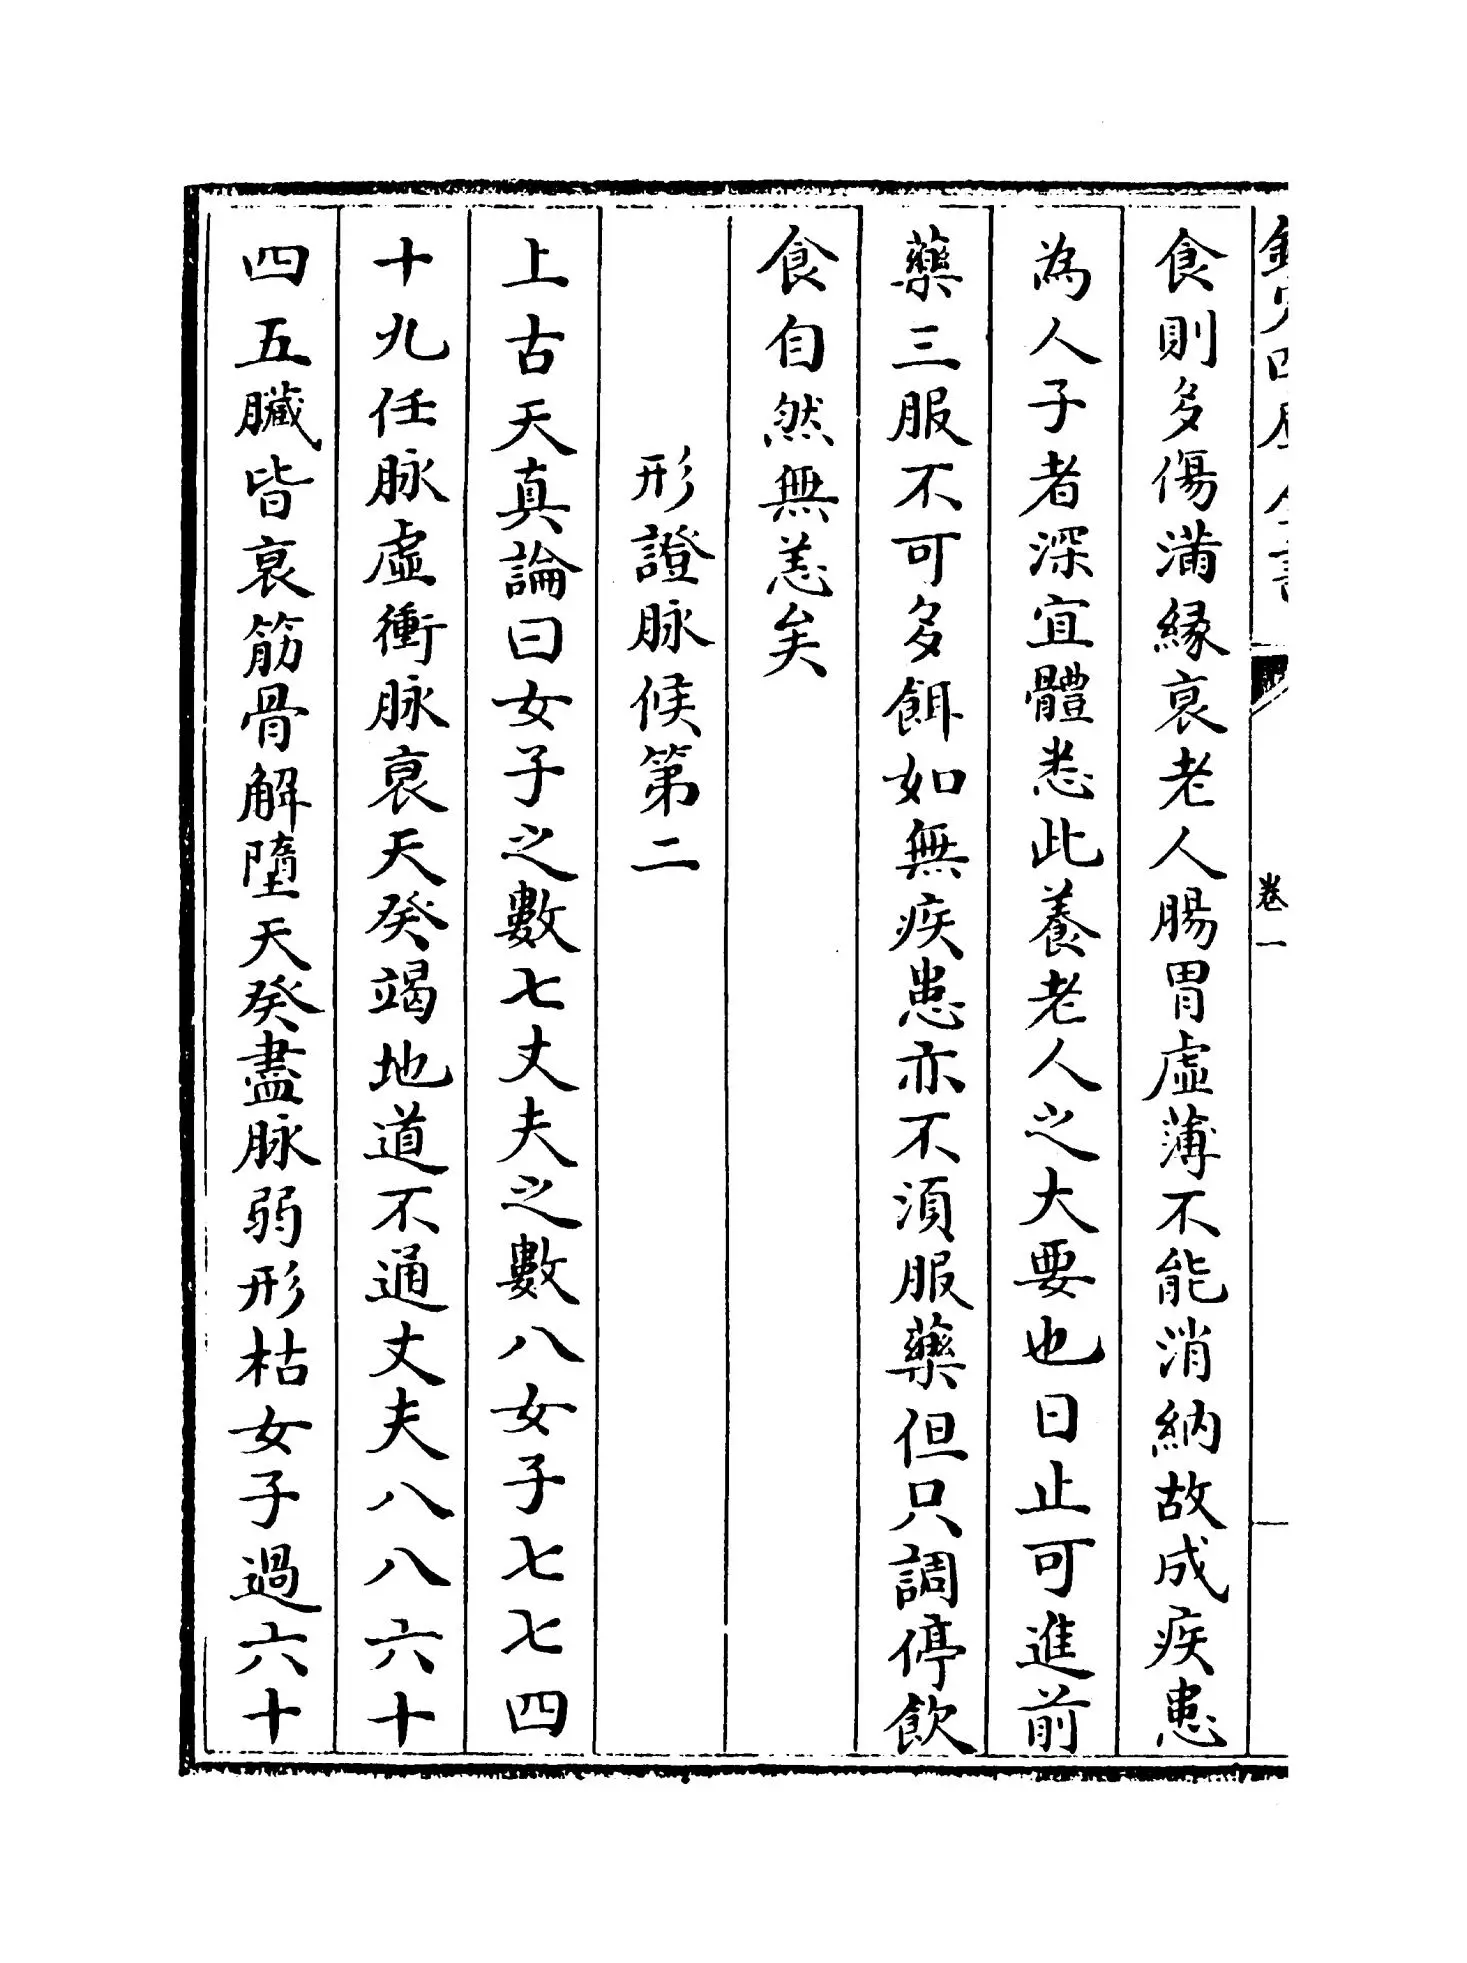 食則多傷滿緣衰老人腸胃虛薄不能消納故成疾患
為人子者深宜體悉此養老人之大要也日止可進前
藥三服不可多餌如無疾患亦不須服藥但只調停飲
食自然無恙矣
形證脉候第二
上古天真論曰女子之數七丈夫之數八女子七七四
十九任脉虛衝脉衰天癸竭地道不通丈夫八八六十
四五臟皆衰筋骨解墮天癸盡脉弱形枯女子過六十
卷一